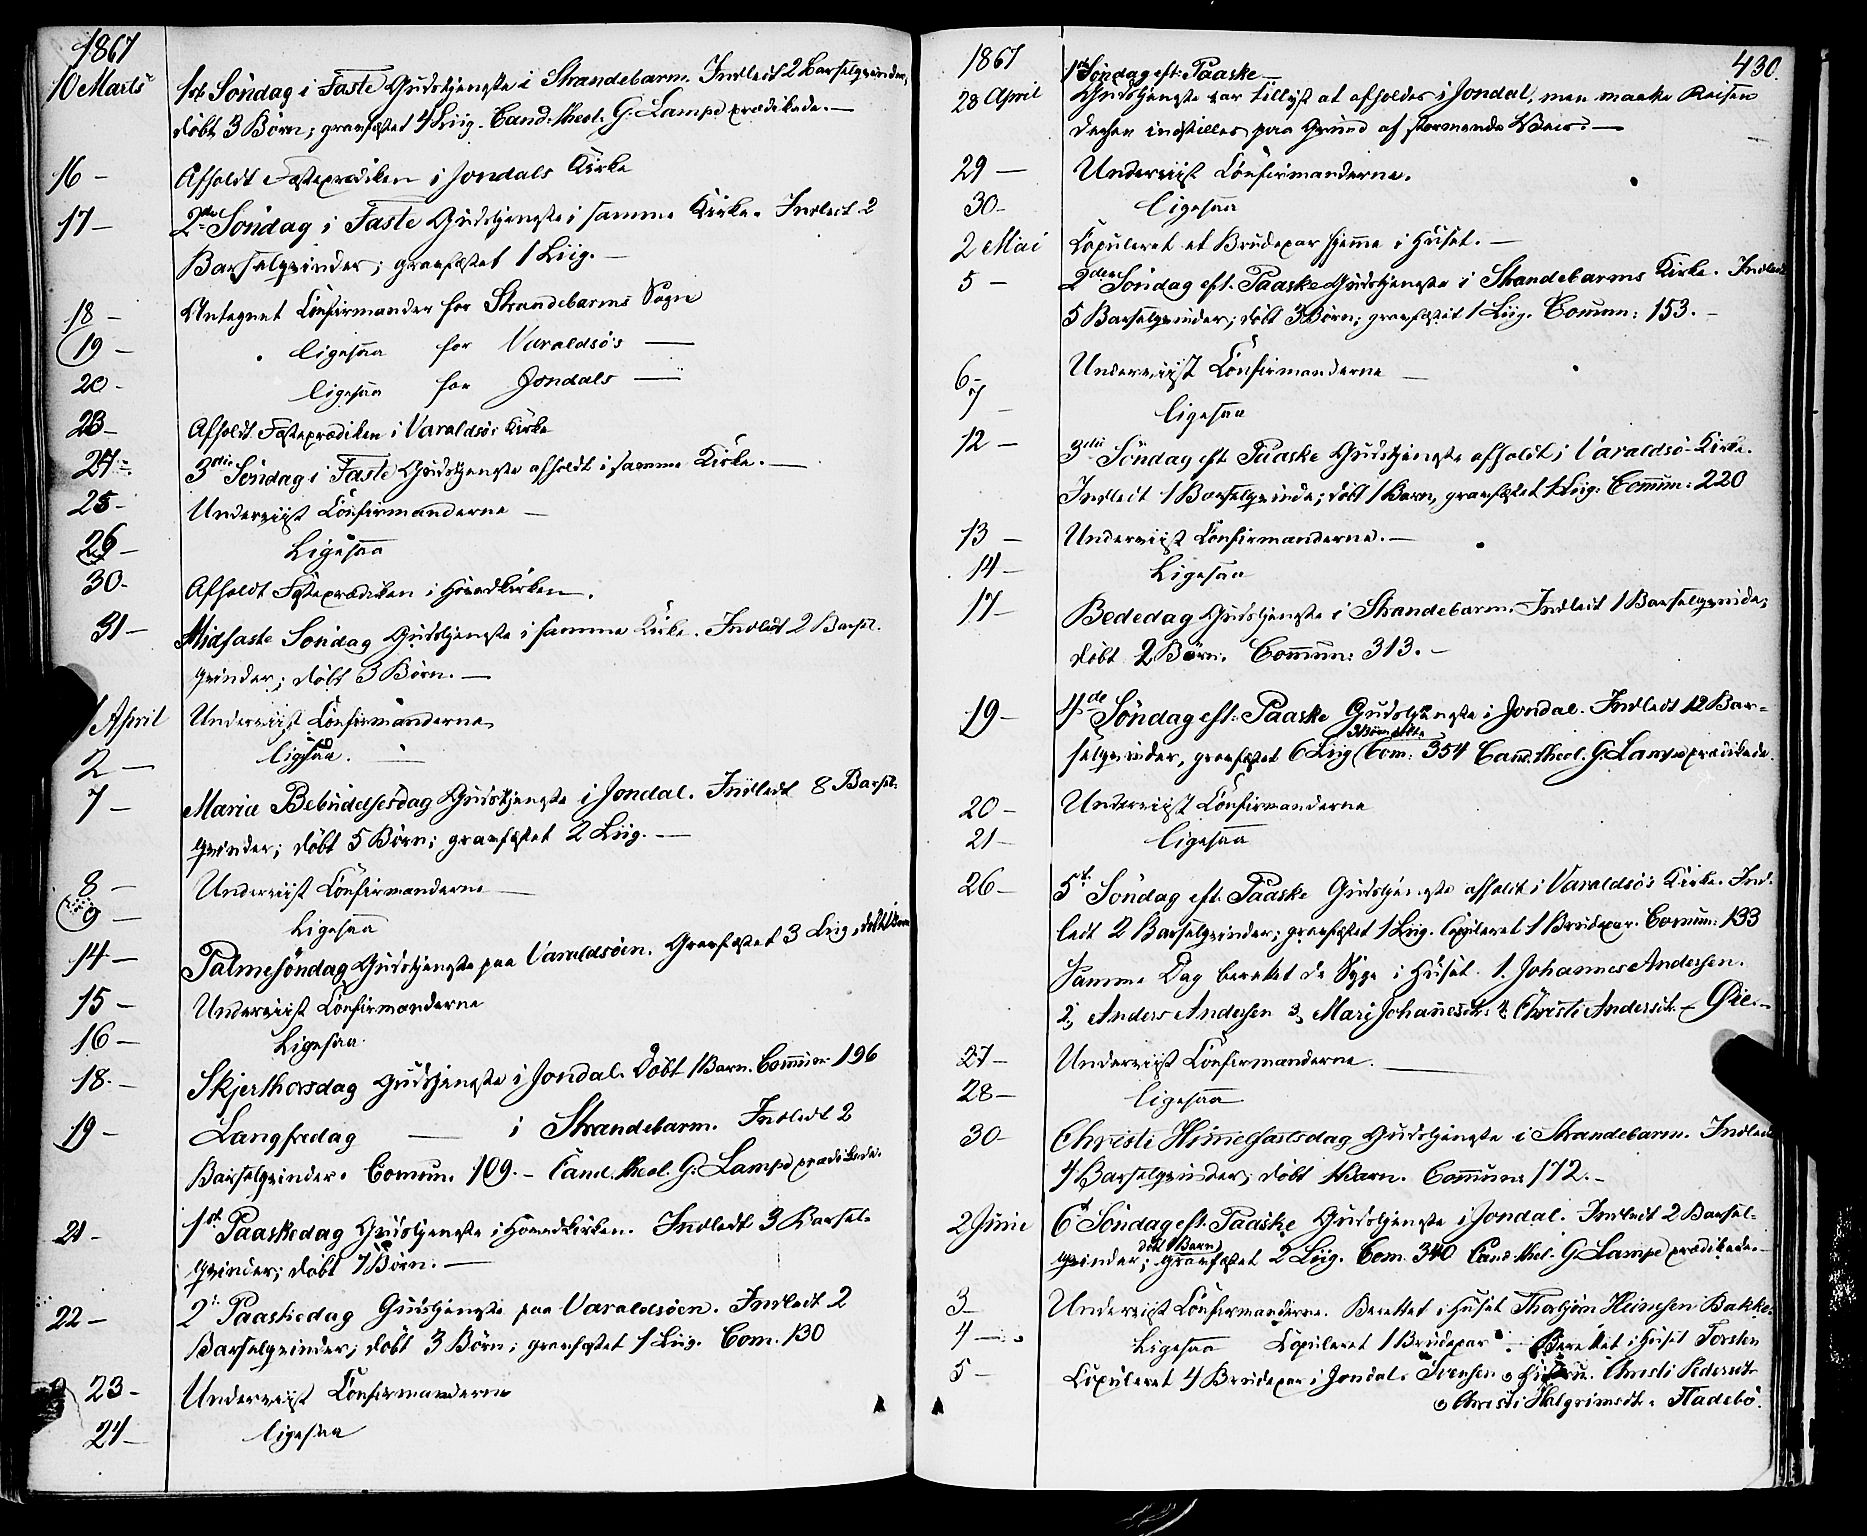 1867
10 Marts 1ste Söndag i Faste Gudstjeneste i Strandebarm. Indledt 2 Barselqvinder,
döbt 3 Börn; gravfæstet 4 Liig. Cand. theol. G. Lampe prædikede. —
16 — Afholdt Fasteprædiken i Jondals Kirke
17 — 2den Söndag i Faste Gudstjeneste i samme Kirke. Indledt 2
Barselqvinder; gravfæstet 1 Liig. —
18 — Antegnet Confirmander for Strandebarms Sogn
19 — ligesaa for Varaldsö's —
20 — ligesaa for Jondals —
23 — Afholdt Fasteprædiken i Varaldsös Kirke
24 — 3die Söndag i Faste Gudstjeneste afholdt i samme Kirke. —
25 — Underviist Confirmanderne —
26 — Ligesaa
30 — Afholdt Fasteprædiken i Hovedkirken.
31 — Midfaste Söndag Gudstjeneste i samme Kirke. Indledt 2 Barsel-
qvinder; döbt 3 Börn. —
1 April Underviist Confirmanderne
2 — ligesaa. —
7 — Mariæ Bebudelsesdag Gudstjeneste i Jondal. Indledt 8 Barsel-
qvinder; döbt 5 Börn; gravfæstet 2 Liig. —
8 — Underviist Confirmanderne —
9 — Ligesaa
14 — Palmesöndag Gudstjeneste paa Varaldsöen. Gravfæstet 3 Liig, döbt 1 Barn
15 — Underviist Confirmanderne
16 — Ligesaa.
18 — Skjerthorsdag Gudstjeneste i Jondal. Döbt 1 Barn. Commun: 196
19 — Langfredag — i Strandebarm. Indledt 2
Barselqvinder. Comun. 109. — Cand. theol. G. Lampe prædikede.
21 — 1ste Paaskedag Gudstjeneste i Hovedkirken. Indledt 3 Barsel-
qvinder; döbt 7 Börn. —
22 — 2. Paaskedag Gudstjeneste paa Varaldsöen. Indledt 2
Barselqvinder; döbt 3 Börn; gravfæstet 1 Liig. Com. 130
23 — Underviist Confirmanderne
24 — ligesaa
1867 430.
1ste Söndag eft. Paaske
28 April Gudstjeneste var tillyst at afholdes i Jondal, men maatte Reisen
indstilles paa Grund af stormende Veir. —
29 — Underviist Confirmanderne.
30 — ligesaa
2 Mai Copuleret et Brudepar hjemme i Huset. —
5 — 2den Söndag eft. Paaske Gudstjeneste i Strandebarms Kirke. Indledt
5 Barselqvinder; döbt 3 Börn; gravfæstet 1 Liig. Comun: 153. —
6 — Underviist Confirmanderne —
7 — ligesaa
12 — 3die Söndag eft. Paaske Gudstjeneste afholdt i Varaldsö Kirke.
Indledt 1 Barselqvinde; döbt 1 Barn, gravfæstet 1 Liig. Comun: 220
13 — Underviist Confirmanderne. —
14 — Ligesaa
17 — Bededag Gudstjeneste i Strandebarm. Indledt 1 Barselqvinde;
döbt 2 Börn. Commun: 313. —
19 — 4de Söndag eft. Paaske Gudstjeneste i Jondal. Indledt 12 Bar-
selqvinder, gravfæstet 6 Liig Com: 354 Cand. theol. G. Lampe prædikede.
20 — Underviist Confirmanderne
21 — ligesaa
26 — 5te Söndag eft. Paaske Gudstjeneste afholdt i Varaldsös Kirke. Ind-
ledt 2 Barselqvinder; gravfæstet 1 Liig. Copuleret 1 Brudepar. Comun: 133
Samme Dag berettet de Syge i Huset. 1, Johannes Andersen.
2, Anders Andersen 3, Mari Johannesdt: 4 Christi Andersdt. — Öie. —
27 — Underviist Confirmanderne. —
28 — ligesaa
30 — Christi Himelfartsdag Gudstjeneste i Strandebarm. Indledt
4 Barselqvinder; döbt 1 Barn. Commun: 172. —
2 Junie 6te Söndag eft. Paaske Gudstjeneste i Jondal. Indledt 2 Barsel-
qvinder; döbt 1 Barn; gravfæstet 2 Liig. Com. 340 Cand. theol. G. Lampe prædikede. —
3 — Underviist Confirmanderne. Berettet i Huset Thorbjörn Heinesen Bakke.
4 — Ligesaa Copuleret 1 Brudepar. Berettet i Huset Torsten
5 — Copuleret 4 Brudepar i Jondal. Svensen Christi Pedersdt
o Christi Halgrimsdt. Fladebö.